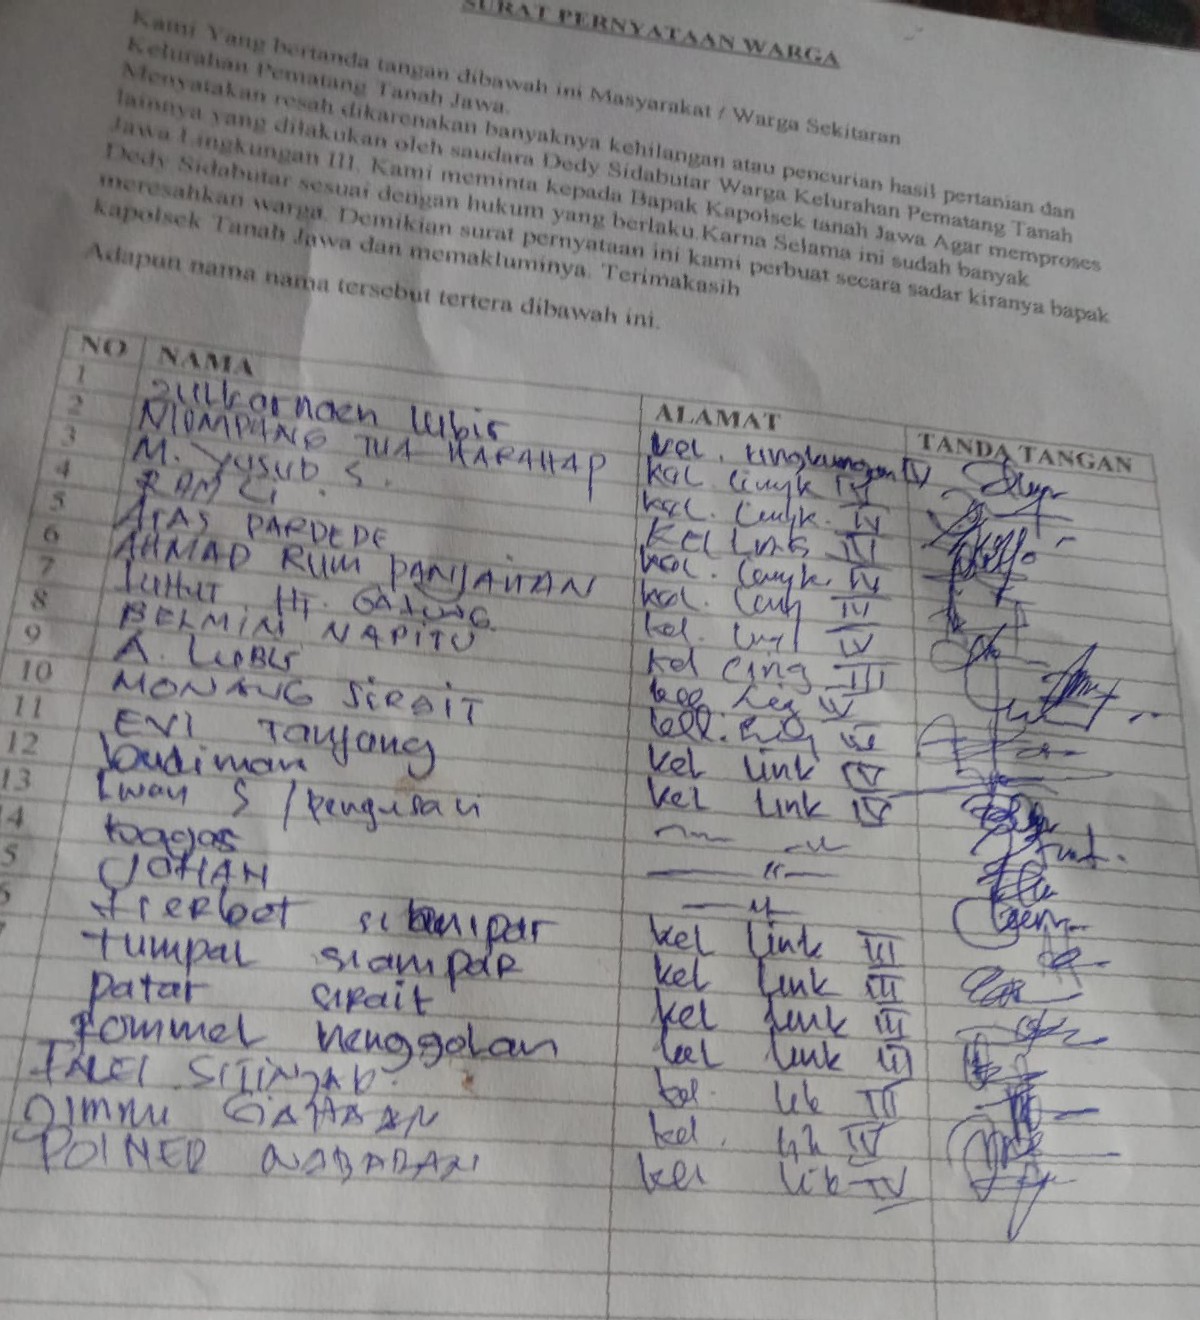 SURAT PERNYATAAN WARGA
Kami Yang bertanda tangan dibawah ini Masyarakat / Warga Sekitaran
Kelurahan Pematang Tanah Jawa.
Menyatakan resah dikarenakan banyaknya kehilangan atau pencurian hasil pertanian dan
lainnya yang dilakukan oleh saudara Dedy Sidabutar Warga Kelurahan Pematang Tanah
Jawa Lingkungan III. Kami meminta kepada Bapak Kapolsek tanah Jawa Agar memproses
Dedy Sidabutar sesuai dengan hukum yang berlaku.Karna Selama ini sudah banyak
meresahkan warga. Demikian surat pernyataan ini kami perbuat secara sadar kiranya bapak
kapolsek Tanah Jawa dan memakluminya. Terimakasih
Adapun nama nama tersebut tertera dibawah ini.
NO NAMA ALAMAT TANDA TANGAN
1 Zulkarnaen Lubis kel. Lingkungan IV
2 NIOMPANG TUA HARAHAP kel. Lingk IV
3 M. Yusub S. kel. Lingk. IV
4 RAMLI KEL LING III
5 ATAS PARDEDE kel. Lingk. IV
6 AHMAD RUM PANJAITAN kel. Ling IV
7 HT. kel. IV
8 BELMIN NAPITU kel Ling III
9 A. LUBIS kel Ling IV
10 MONANG SIRAIT kel.
11 EVI Tanjang kel Link IV
12 budiman kel Link IV
13 Iwan S /pengusaii
4 toggos
5 JOHAN
6 kel Link III
tumpal siampar kel Link III
patar sirait kel Link III
Rommel Nenggolan kel Link III
kel. Lik III
kel. Lik IV
POINER NABABAN kel Lik IV